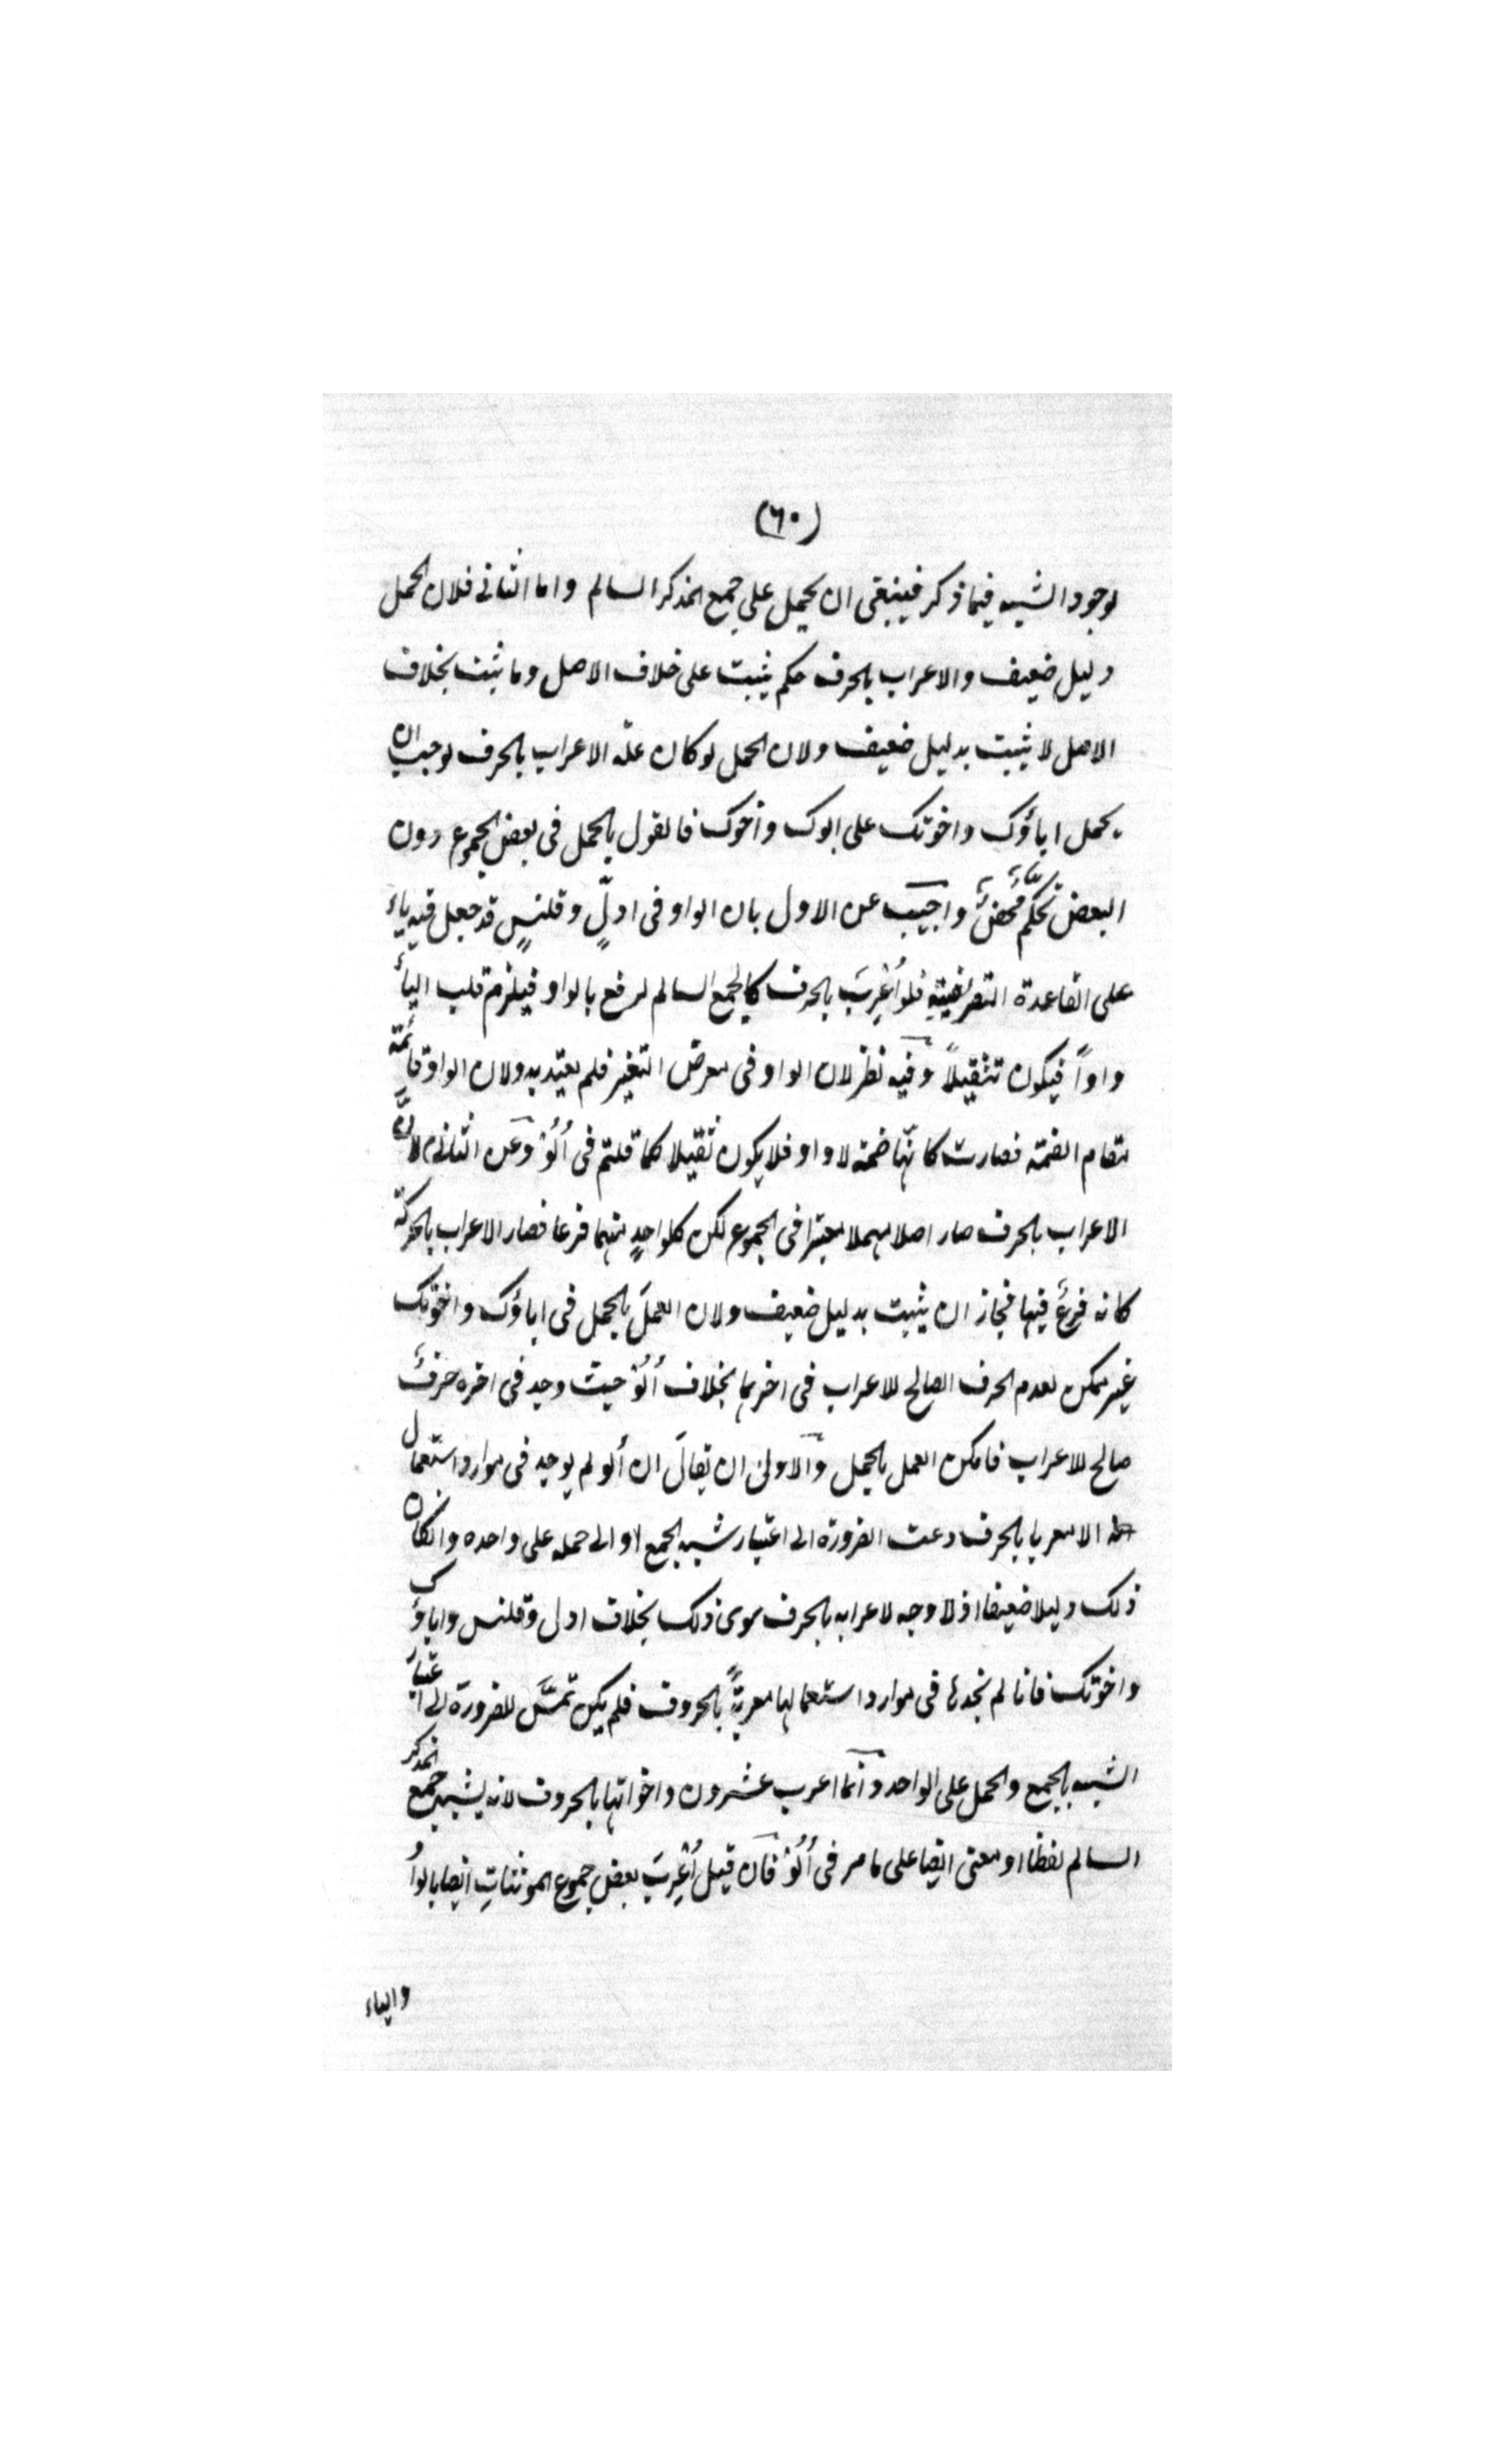 (٦٠)
لوجود الشبه فيما ذكر فينبغى ان يحمل على جمع المذكر السالم واما الثانى فلان الحمل
دليل ضعيف والاعراب بالحرف حكم يثبت على خلاف الاصل وما يثبت بخلاف
الاصل لا يثبت بدليل ضعيف ولان الحمل لو كان علة الاعراب بالحرف لوجب ان
يحمل اباؤك واخوتك على ابوك واخوك فالقول بالحمل فى بعض الجموع دون
البعض تحكّم محضٌ واجيب عن الاول بان الواو فى ادلٍ وقلنسٍ قد جعل فيه ياء
على القاعدة التصريفية فلو أُعْرِبَ بالحرف كالجمع السالم لرفع بالواو فيلزم قلب الياء
واواً فيكون تثقيلاً وفيه نظر لان الواو فى معرض التغير فلم يعتد به ولان الواو قائمة
مقام الضمة فصارت كانّها ضمة لا واو فلا يكون ثقيلا كما قلتم فى أُلُوْ وعن الثانى لانَّ
الاعراب بالحرف صار اصلا مهملا معتبرا فى الجموع لكن كلواحدٍ منهما فرعا فصار الاعراب بالحركة
كانه فرعٌ فيها فجاز ان يثبت بدليل ضعيف ولان العملَ بالحمل فى اباؤك واخوتك
غير ممكن لعدم الحرف الصالح للاعراب فى اخرهما بخلاف أُلُوْ حيث وجد فى اخره حرفٌ
صالح للاعراب فامكن العمل بالحمل والاولى ان يقال ان ألو لم يوجد فى موارد استعمال
الا معربا بالحرف دعت الضرورة الى اعتبار شبه الجمع او الى حمله على واحده وانكان
ذلك دليلا ضعيفا اذ لا وجه لاعرابه بالحرف سوى ذلك بخلاف ادل وقلنس واباؤك
واخوتك فانا لم نجدها فى موارد استعمالها معربةً بالحروف فلم يكن تمسّ الضرورة الى اعتبار
الشبه بالجمع والحمل على الواحد وانما اعرب عشرون واخواتها بالحروف لانه يشبه جمع المذكر
السالم لفظا او معنى ايضا على ما مر فى أُلُوْ فان قيل أُعْرِبَ بعض جموع المؤنثات ايضا بالواو
والياء